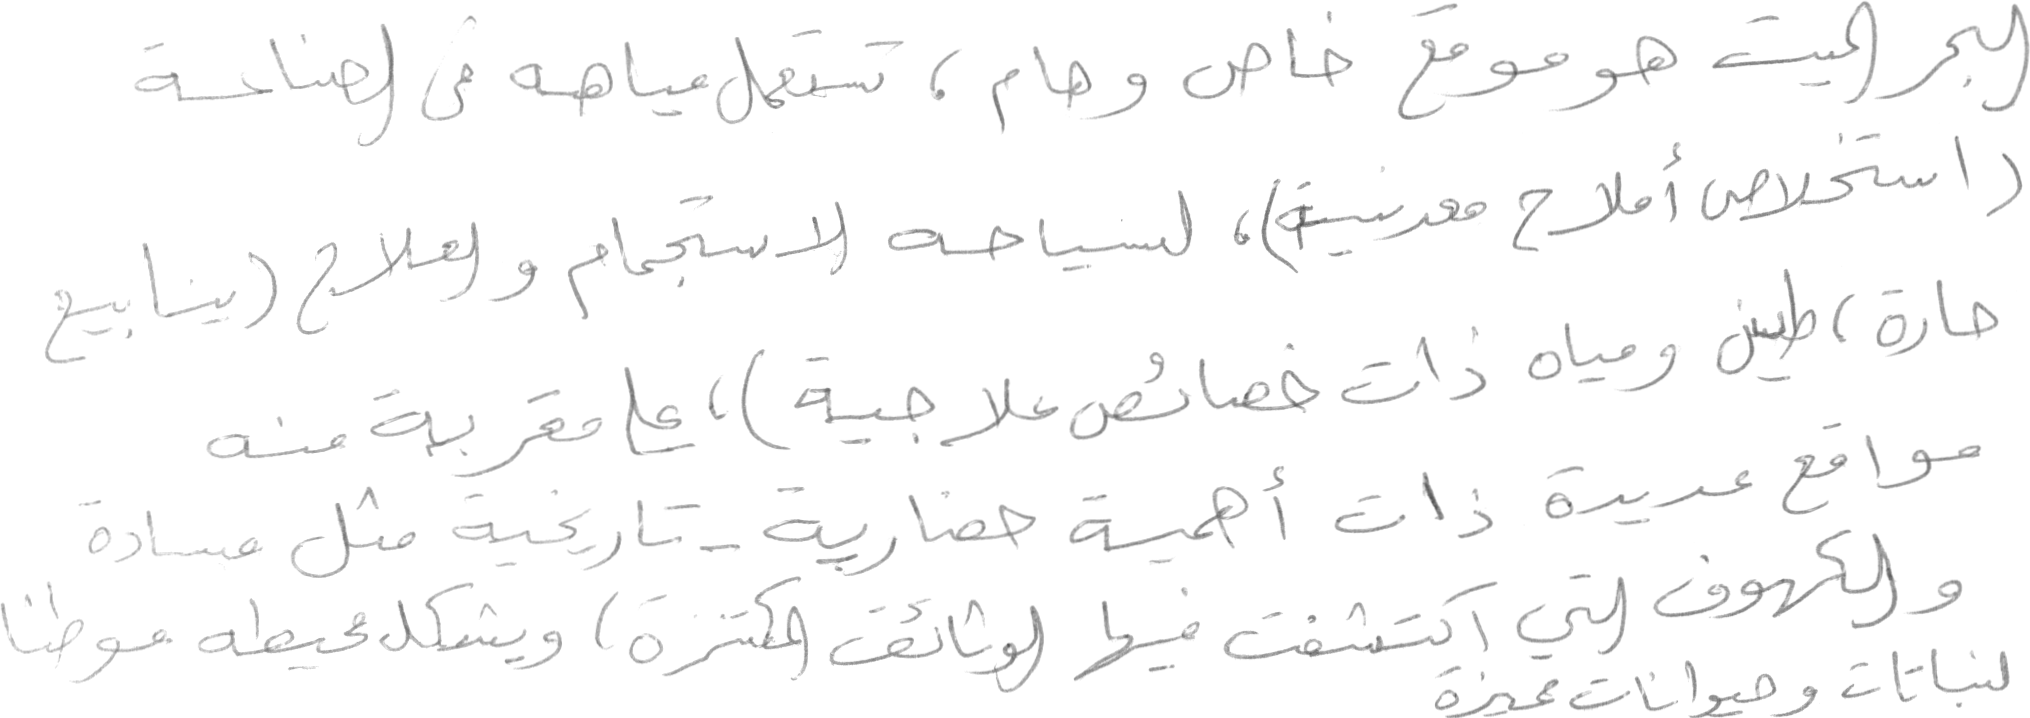 البحر الميت هو موقع خاص وهام، تستعمل مياهه في الصناعة
(استخلاص أملاح معدنية)، لسياحه الاستجمام والعلاج (ينابيع
حارة، طين ومياه ذات خصائص علاجية)، على مقربة منه
مواقع عديدة ذات أهمية حضارية - تاريخية مثل مسادة
والكهوف التي اكتشفت فيها الوثائق المكتنزة، ويشكل محيطه موطنا
لنباتات وحيوانات مميزة